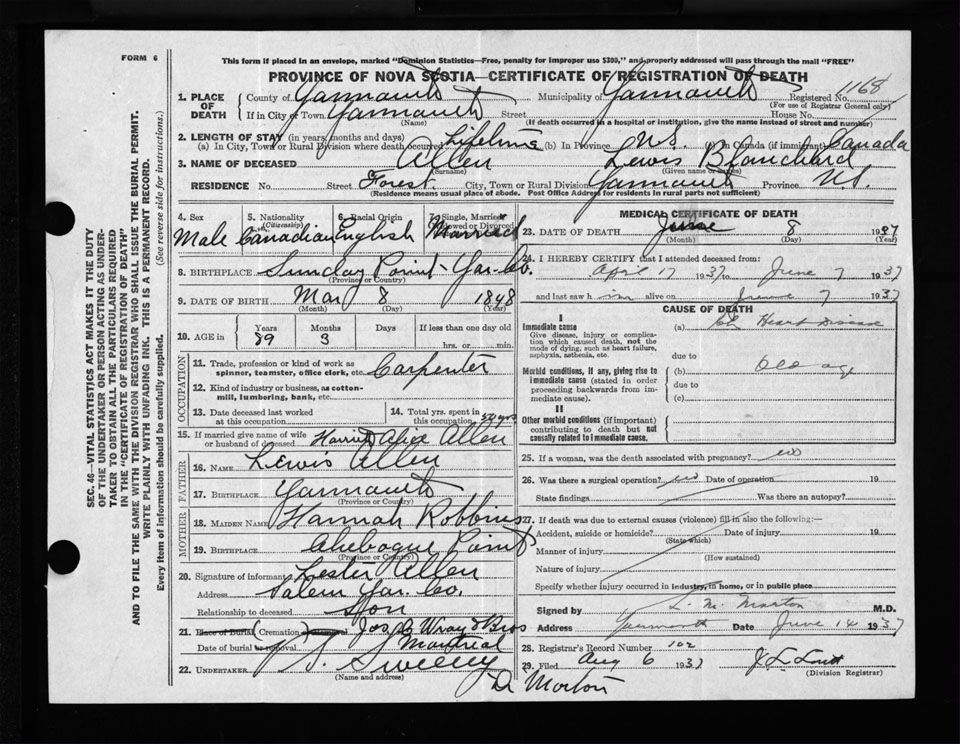 FORM 6
This form if placed in an envelope, marked "Dominion Statistics—Free, penalty for improper use $300," and properly addressed will pass through the mail "FREE"
PROVINCE OF NOVA SCOTIA—CERTIFICATE OF REGISTRATION OF DEATH
1. PLACE OF DEATH
County of Yarmouth Municipality of Yarmouth Registered No. 1168
(For use of Registrar General only)
If in City or Town Yarmouth Street House No.
(Name) (If death occurred in a hospital or institution, give the name instead of street and number)
2. LENGTH OF STAY (in years, months and days)
(a) In City, Town or Rural Division where death occurred Lifetime (b) In Province N.S. In Canada (if immigrant) Canada
3. NAME OF DECEASED Allen Lewis Blanchard
(Surname) (Given name or names)
RESIDENCE No. Street Forest City, Town or Rural Division Yarmouth Province N.S.
(Residence means usual place of abode. Post Office Address for residents in rural parts not sufficient)
4. Sex 5. Nationality (Citizenship) 6. Racial Origin 7. Single, Married, Widowed or Divorced
Male Canadian English Married
8. BIRTHPLACE Sunday Point - Yar. Co.
(Province or Country)
9. DATE OF BIRTH Mar 8 1848
(Month) (Day) (Year)
10. AGE in Years Months Days If less than one day old
89 3 hrs. or min.
OCCUPATION
11. Trade, profession or kind of work as spinner, teamster, office clerk, etc. Carpenter
12. Kind of industry or business, as cotton-mill, lumbering, bank, etc.
13. Date deceased last worked at this occupation
14. Total yrs. spent in this occupation 50 yrs
15. If married give name of wife or husband of deceased Harriet Alice Allen
FATHER
16. NAME Lewis Allen
17. BIRTHPLACE Yarmouth
(Province or Country)
MOTHER
18. MAIDEN NAME Hannah Robbins
19. BIRTHPLACE Chebogue Point
(Province or Country)
20. Signature of informant Lester Allen
Address Salem Yar. Co.
Relationship to deceased Son
21. Place of Burial (Cremation Jos. C Wray & Bros
Date of burial or removal Montreal
22. UNDERTAKER Sweeny
(Name and address)
Dr Morton
MEDICAL CERTIFICATE OF DEATH
23. DATE OF DEATH June 8 1937
(Month) (Day) (Year)
24. I HEREBY CERTIFY that I attended deceased from:
April 17 1937 to June 7 1937
and last saw him alive on June 7 1937
CAUSE OF DEATH
I
Immediate cause
Give disease, injury or complication which caused death, not the mode of dying, such as heart failure, asphyxia, asthenia, etc.
(a) Ch Heart Disease
due to
Morbid conditions, if any, giving rise to immediate cause (stated in order proceeding backwards from immediate).
(b) Old age
due to
(c)
II
Other morbid conditions (if important) contributing to death but not causally related to immediate cause.
25. If a woman, was the death associated with pregnancy? no
26. Was there a surgical operation? no Date of operation 19
State findings Was there an autopsy?
27. If death was due to external causes (violence) fill in also the following:—
Accident, suicide or homicide? Date of injury 19
(State which)
Manner of injury
(How sustained)
Nature of injury
Specify whether injury occurred in industry, in home, or in public place
Signed by L. M. Morton M.D.
Address Yarmouth Date June 14 1937
28. Registrar's Record Number 102
29. Filed Aug 6 1937
(Division Registrar)
SEC. 46—VITAL STATISTICS ACT MAKES IT THE DUTY
OF THE UNDERTAKER OR PERSON ACTING AS UNDERTAKER
TO OBTAIN ALL THE PARTICULARS REQUIRED
IN THE "CERTIFICATE OF REGISTRATION OF DEATH"
AND TO FILE THE SAME WITH THE DIVISION REGISTRAR WHO SHALL ISSUE THE BURIAL PERMIT.
WRITE PLAINLY WITH UNFADING INK. THIS IS A PERMANENT RECORD.
Every item of information should be carefully supplied. (See reverse side for instructions.)